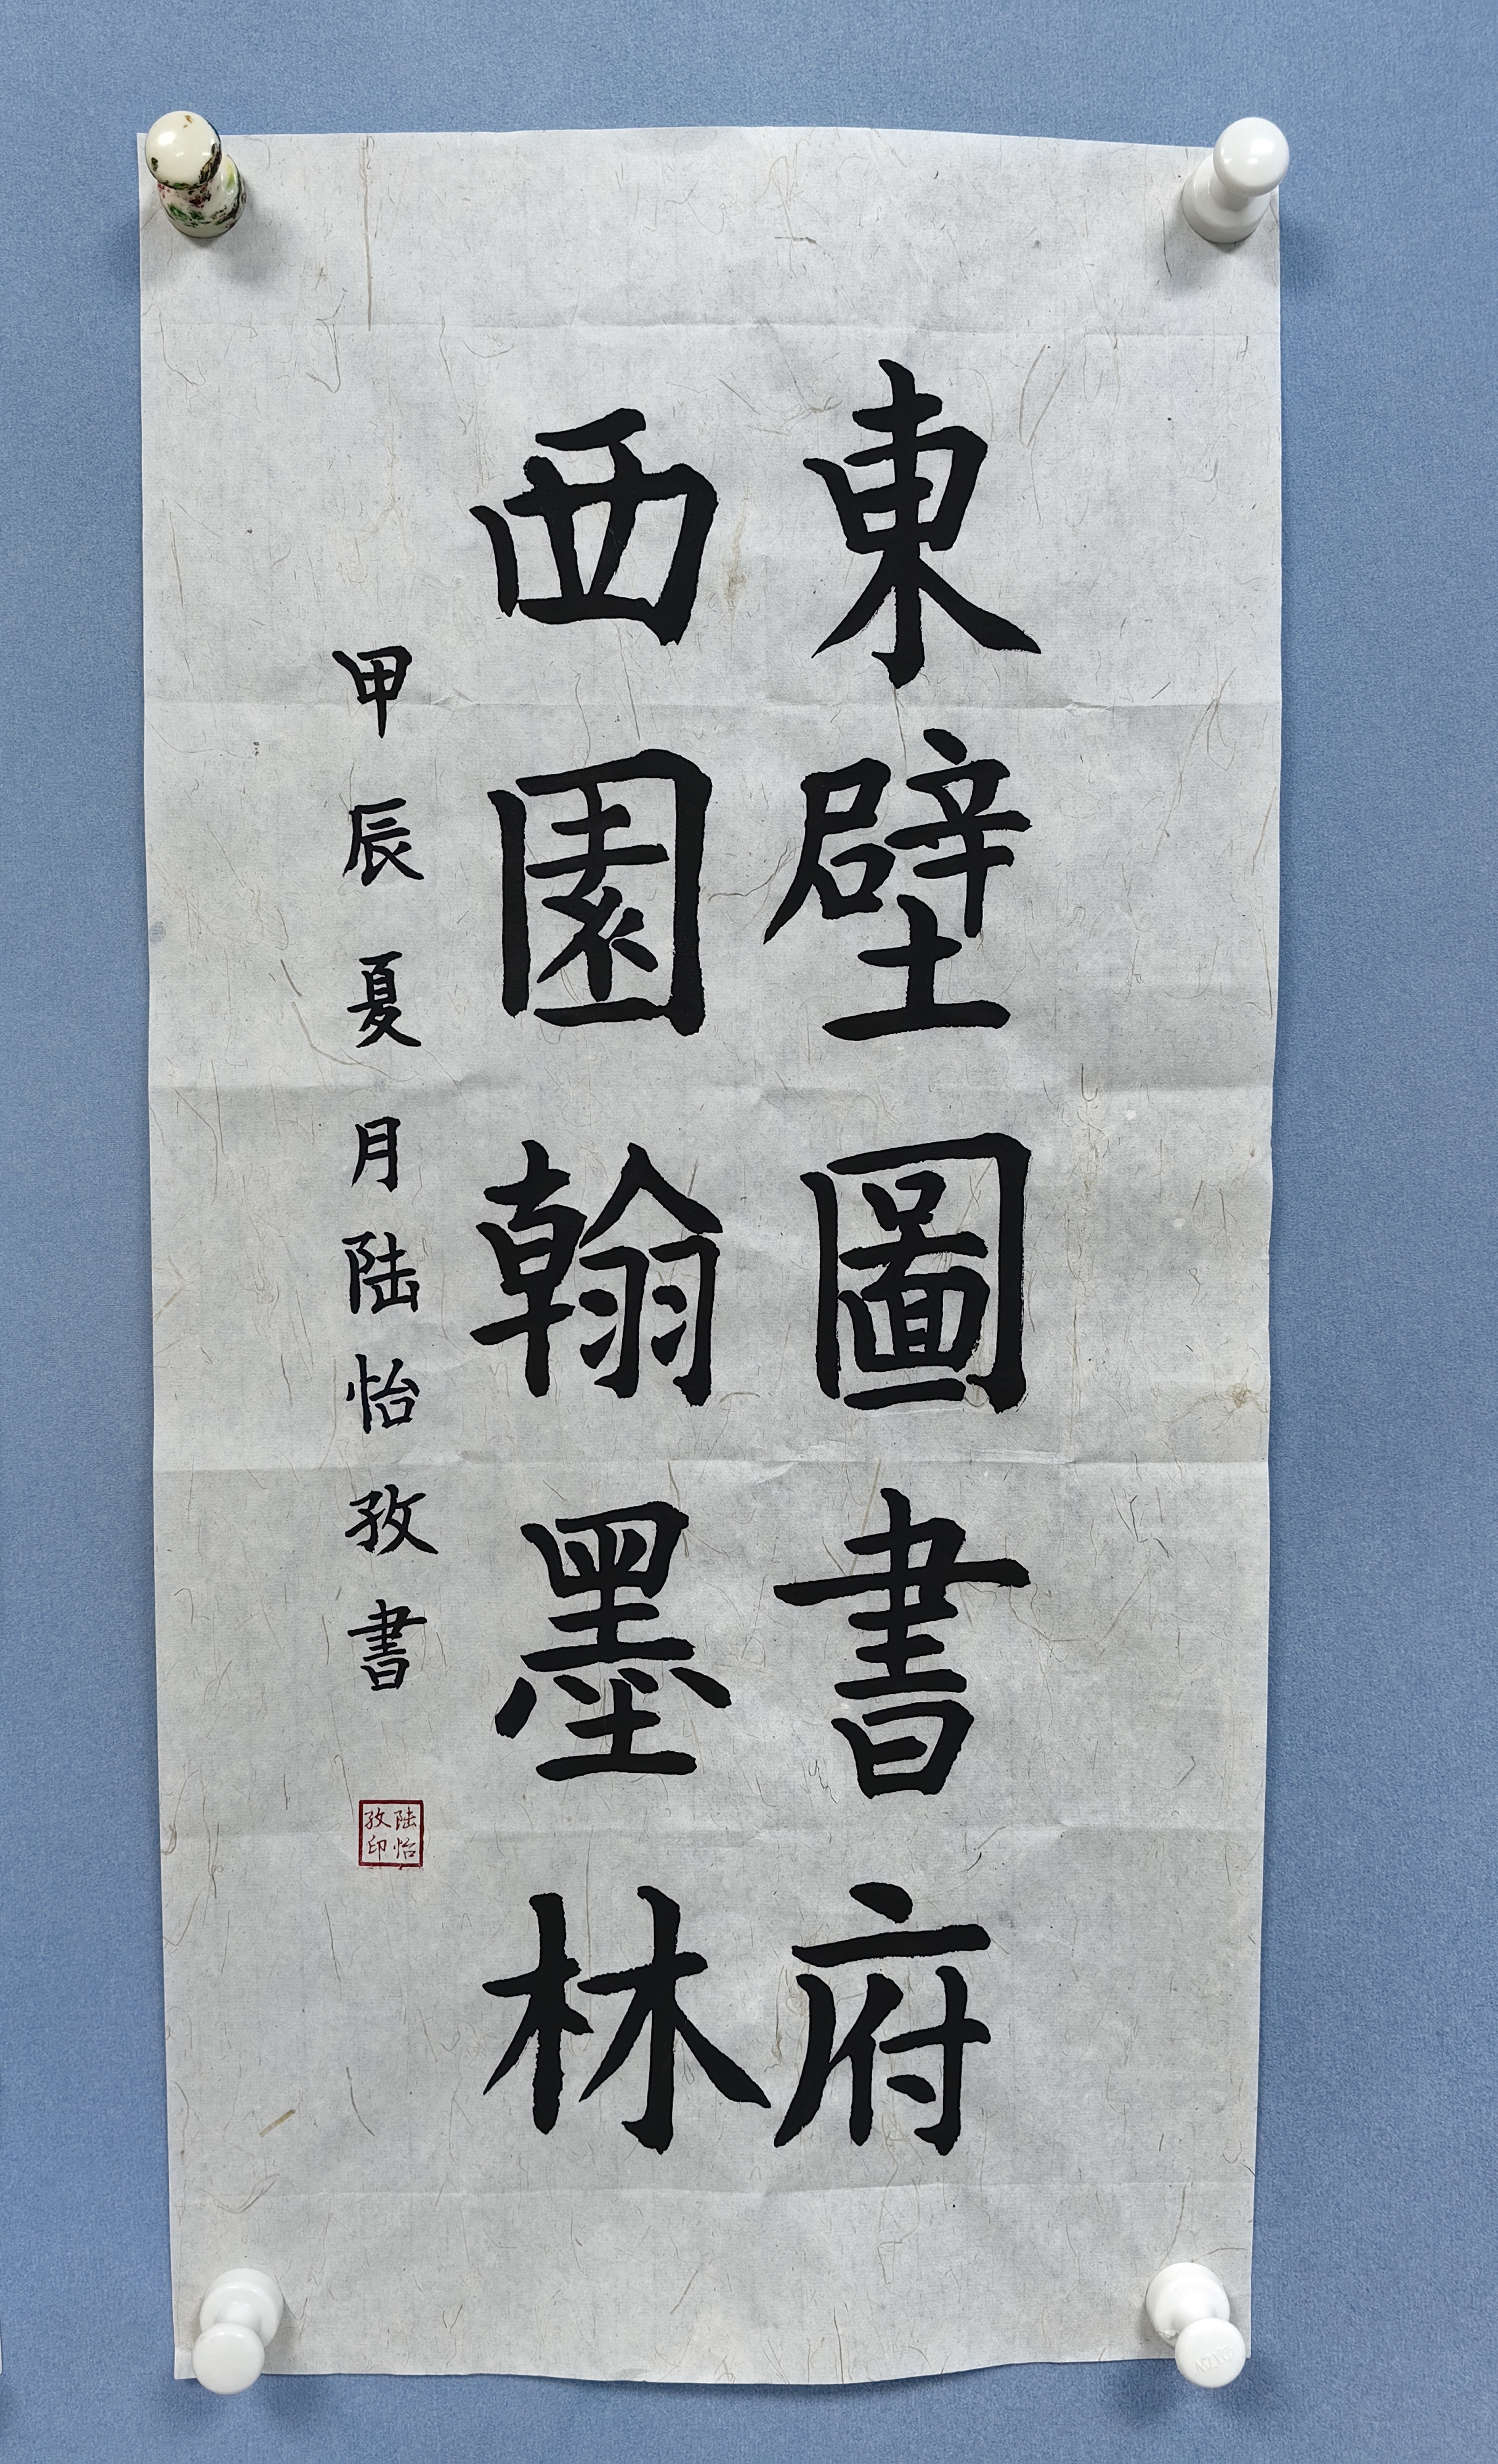 東壁圖書府
西園翰墨林
甲辰夏月陆怡孜書
陆怡
孜印